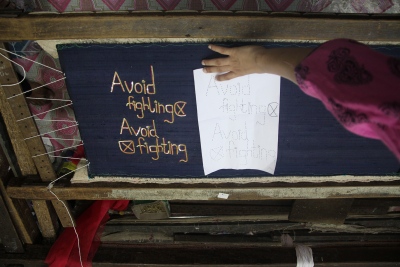 Avoid
fighting
Avoid
fighting
Avoid
fighting
Avoid
fighting